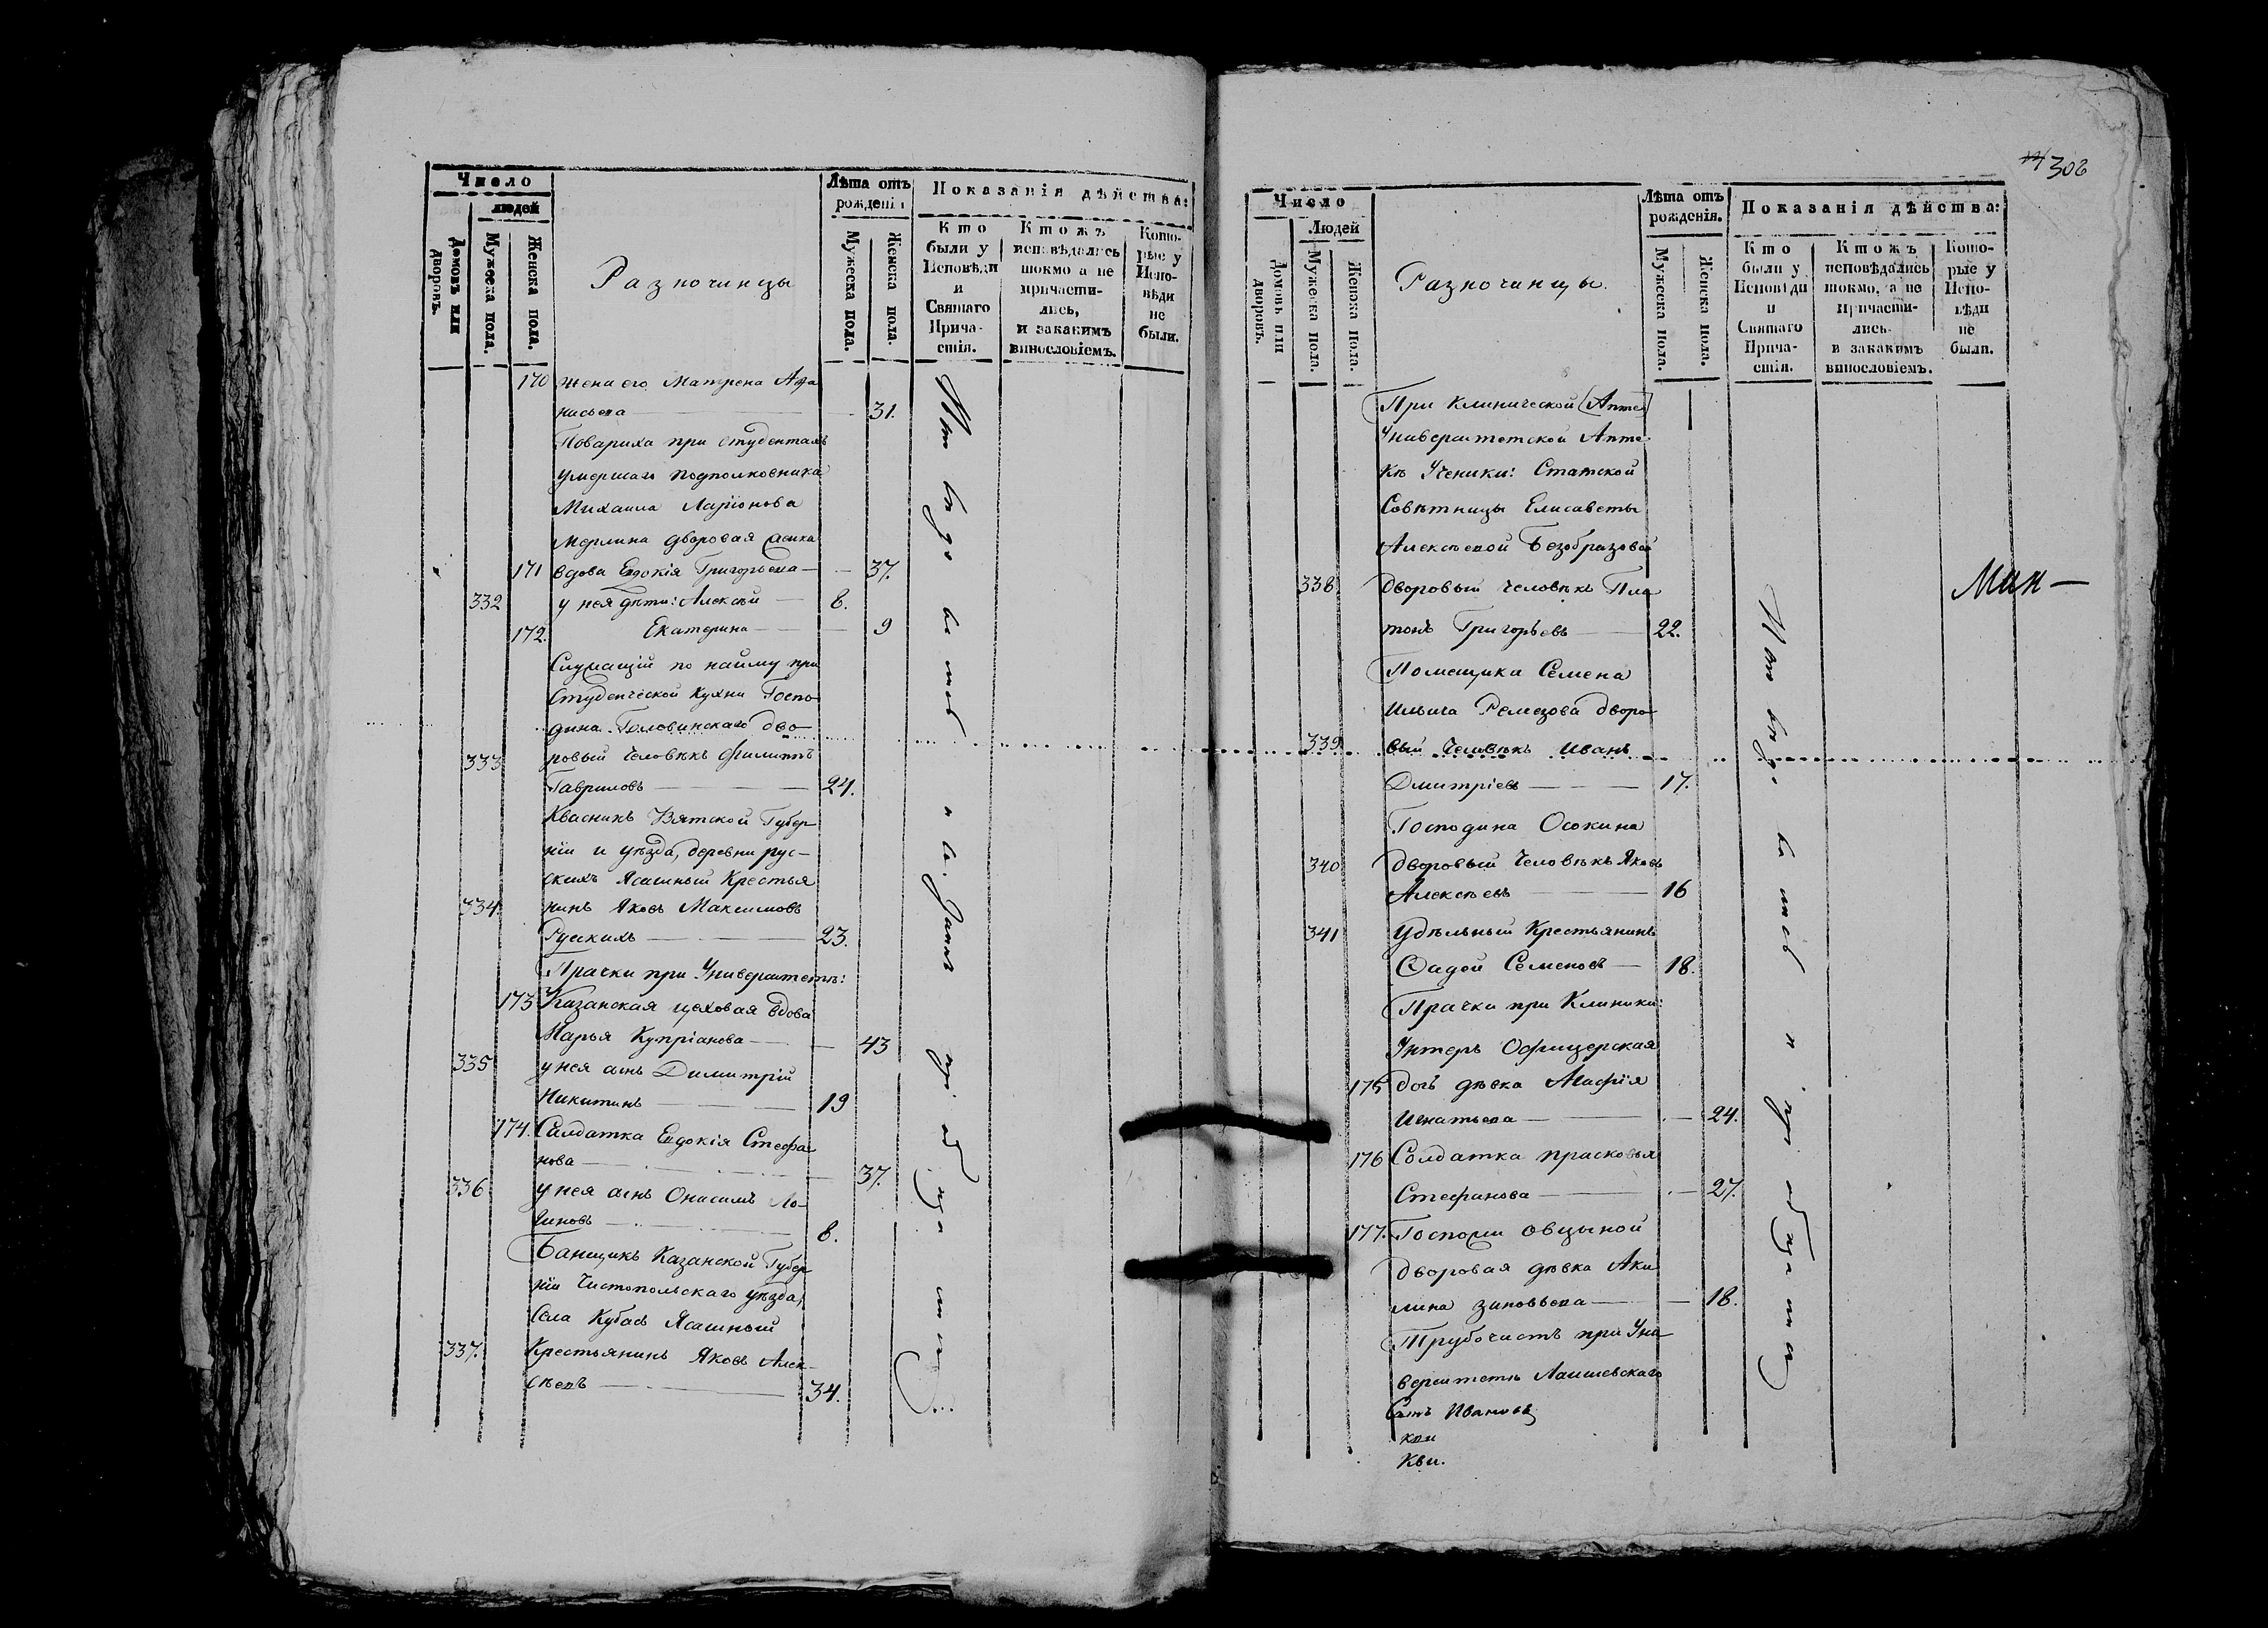 Число
людей
Домовъ или дворовъ.
Мужеска пола.
Женска пола.
Разночинцы
Лѣта отъ
рожденія
Мужеска пола.
Женска пола.
Показанія дѣйства:
Кто
были у
Исповѣди
и
Святаго
Прича-
стія.
Ктожъ
исповѣдались
токмо а не
причасти-
лись,
и закакимъ
винословіемъ.
Кото-
рые у
Испо-
вѣди
не
были.
170 жена его Матрена Афа
насьева 31.
Повариха при студентахъ
умершаго подполковника
Михаила Ларіонова
Мерлина дворовая
171 вдова Евдокія Григорьева 37.
332 у нея дѣти: Алексѣй 8.
172. Екатерина 9
Служащій по найму при
Студенческой Кухни Госпо
дина Головинскаго дво-
333 ровый человѣкъ Филиппъ
Гавриловъ 24.
Квасникъ Вятской Губер
ніи и уѣзда, деревни рус-
скихъ Ясашный Крестья
334. нинъ Яковъ Максимовъ
Русскихъ 23.
Прачки при Университетѣ:
173 Казанская цеховая вдова
Марья Купріанова 43
335 у нея сынъ Димитрій
Никитинъ 19
174. Салдатка Евдокія Стефа
нова 37.
336 у нея сынъ Онисимъ Ло-
гиновъ 8.
Банщикъ Казанской Губер
ніи Чистопольскаго уѣзда,
Села Кубасъ Ясашный
337. Крестьянинъ Яковъ Алек-
сѣевъ 34.
306
Число
Людей
Домовъ или дворовъ.
Мужеска пола.
Женска пола.
Разночинцы.
Лѣта отъ
рожденія.
Мужеска пола.
Женска пола.
Показанія дѣйства:
Кто
были у
Исповѣди
и
Святаго
Прича-
стія.
Ктожъ
исповѣдались
токмо, а не
причасти-
лись.
и закакимъ
винословіемъ.
Кото-
рые у
Испо-
вѣди
не
были.
При Клинической (Апте)
Университетской Апте
кѣ Ученики: Статской
Совѣтницы Елисаветы
Алексѣевой Безобразовой
338 дворовый человѣкъ Пла
тонъ Григорьевъ 22.
Помещика Семена
Ильича Ремезова дворо
339 вый человѣкъ Иванъ
Дмитріевъ 17.
Господина Осокина
340 дворовый человѣкъ Яковъ
Алексѣевъ 16
341 Удѣльный Крестьянинъ
Фадей Семеновъ 18.
Прачки при Клиники:
Унтеръ Офицерская
175 дочь дѣвка Агафія
Игнатьева 24.
176 Солдатка Прасковья
Стефанова 27.
177. Госпожи Овцыной
дворовая дѣвка Аку
лина Зиновьева 18.
Трубочистъ при Уни
верситетѣ Лаишевскаго